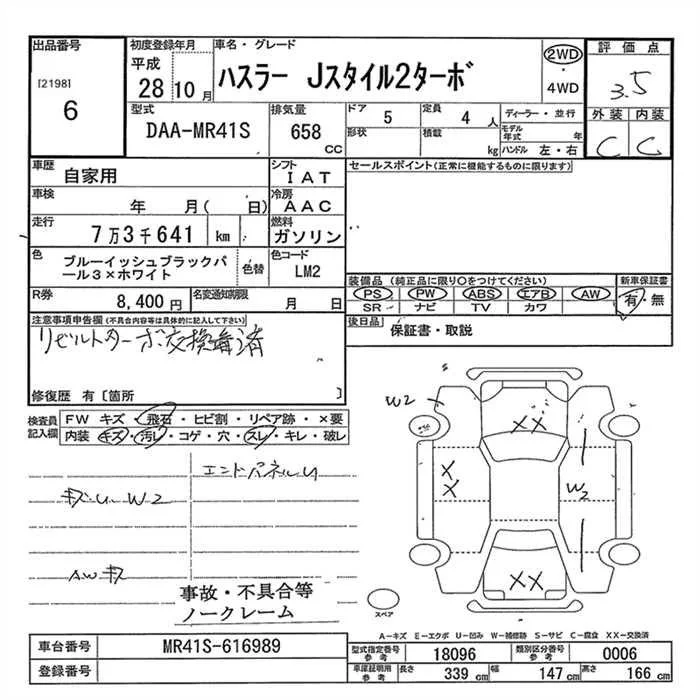 出品番号
[2198]
6
初度登録年月
平成
28 10月
車名・グレード
ハスラー Jスタイル2ターボ
2WD
4WD
評価点
3.5
外装 内装
C C
型式
DAA-MR41S
排気量
658
CC
ドア
5
形状
定員
4人
積載
kg
ディーラー・並行
モデル年式 年
ハンドル 左・右
車歴
自家用
シフト
IAT
車検
年 月( 日)
冷房
AAC
走行
7万3千641 km
燃料
ガソリン
色
ブルーイッシュブラックパ
ール3×ホワイト
色替
色コード
LM2
R券
8,400円
名変通知期限
月 日
セールスポイント(正常に機能するものに限ります)
装備品 (純正品に限り○をつけてください)
新車保証書
PS PW ABS エアB AW
SR ナビ TV カワ
有・無
後日品
保証書・取説
注意事項申告欄(不具合内容等は具体的に記入して下さい)
修復歴 有〔箇所 〕
検査員
記入欄
FW キズ・飛石・ヒビ割・リペア跡・×要
内装 キズ・汚レ・コゲ・穴・スレ・キレ・破レ
エンドパネルU
キズU W2
AWキズ
事故・不具合等
ノークレーム
W2
XX
X
X
W2
XX
スペア
A-キズ E-エクボ U-凹み W-補修跡 S-サビ C-腐食 XX-交換済
車台番号
MR41S-616989
登録番号
型式指定番号
参考
18096
類別区分番号
参考
0006
車庫証明用
参考
長さ 339 cm 幅 147 cm 高さ 166 cm